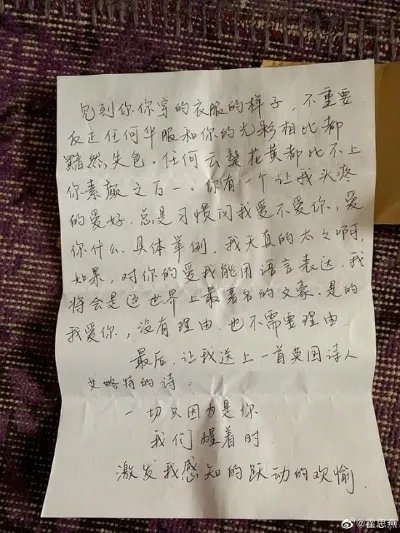 见到你你穿的衣服的样子，不重要
反正任何华服和你的光彩相比都
黯然失色。任何云鬓花黄都比不上
你素颜之百一。你有一个让我头疼
的爱好，总是习惯问我爱不爱你，爱
你什么，具体举例。我天真的太太啊，
如果，对你的爱我能用语言表达，我
将会是这世界上最著名的文豪。是的
我爱你，没有理由，也不需要理由。
最后，让我送上一首英国诗人
艾略特的诗：
一切只因为是你
我们醒着时
激发我感知的跃动的欢愉．
@霍思燕